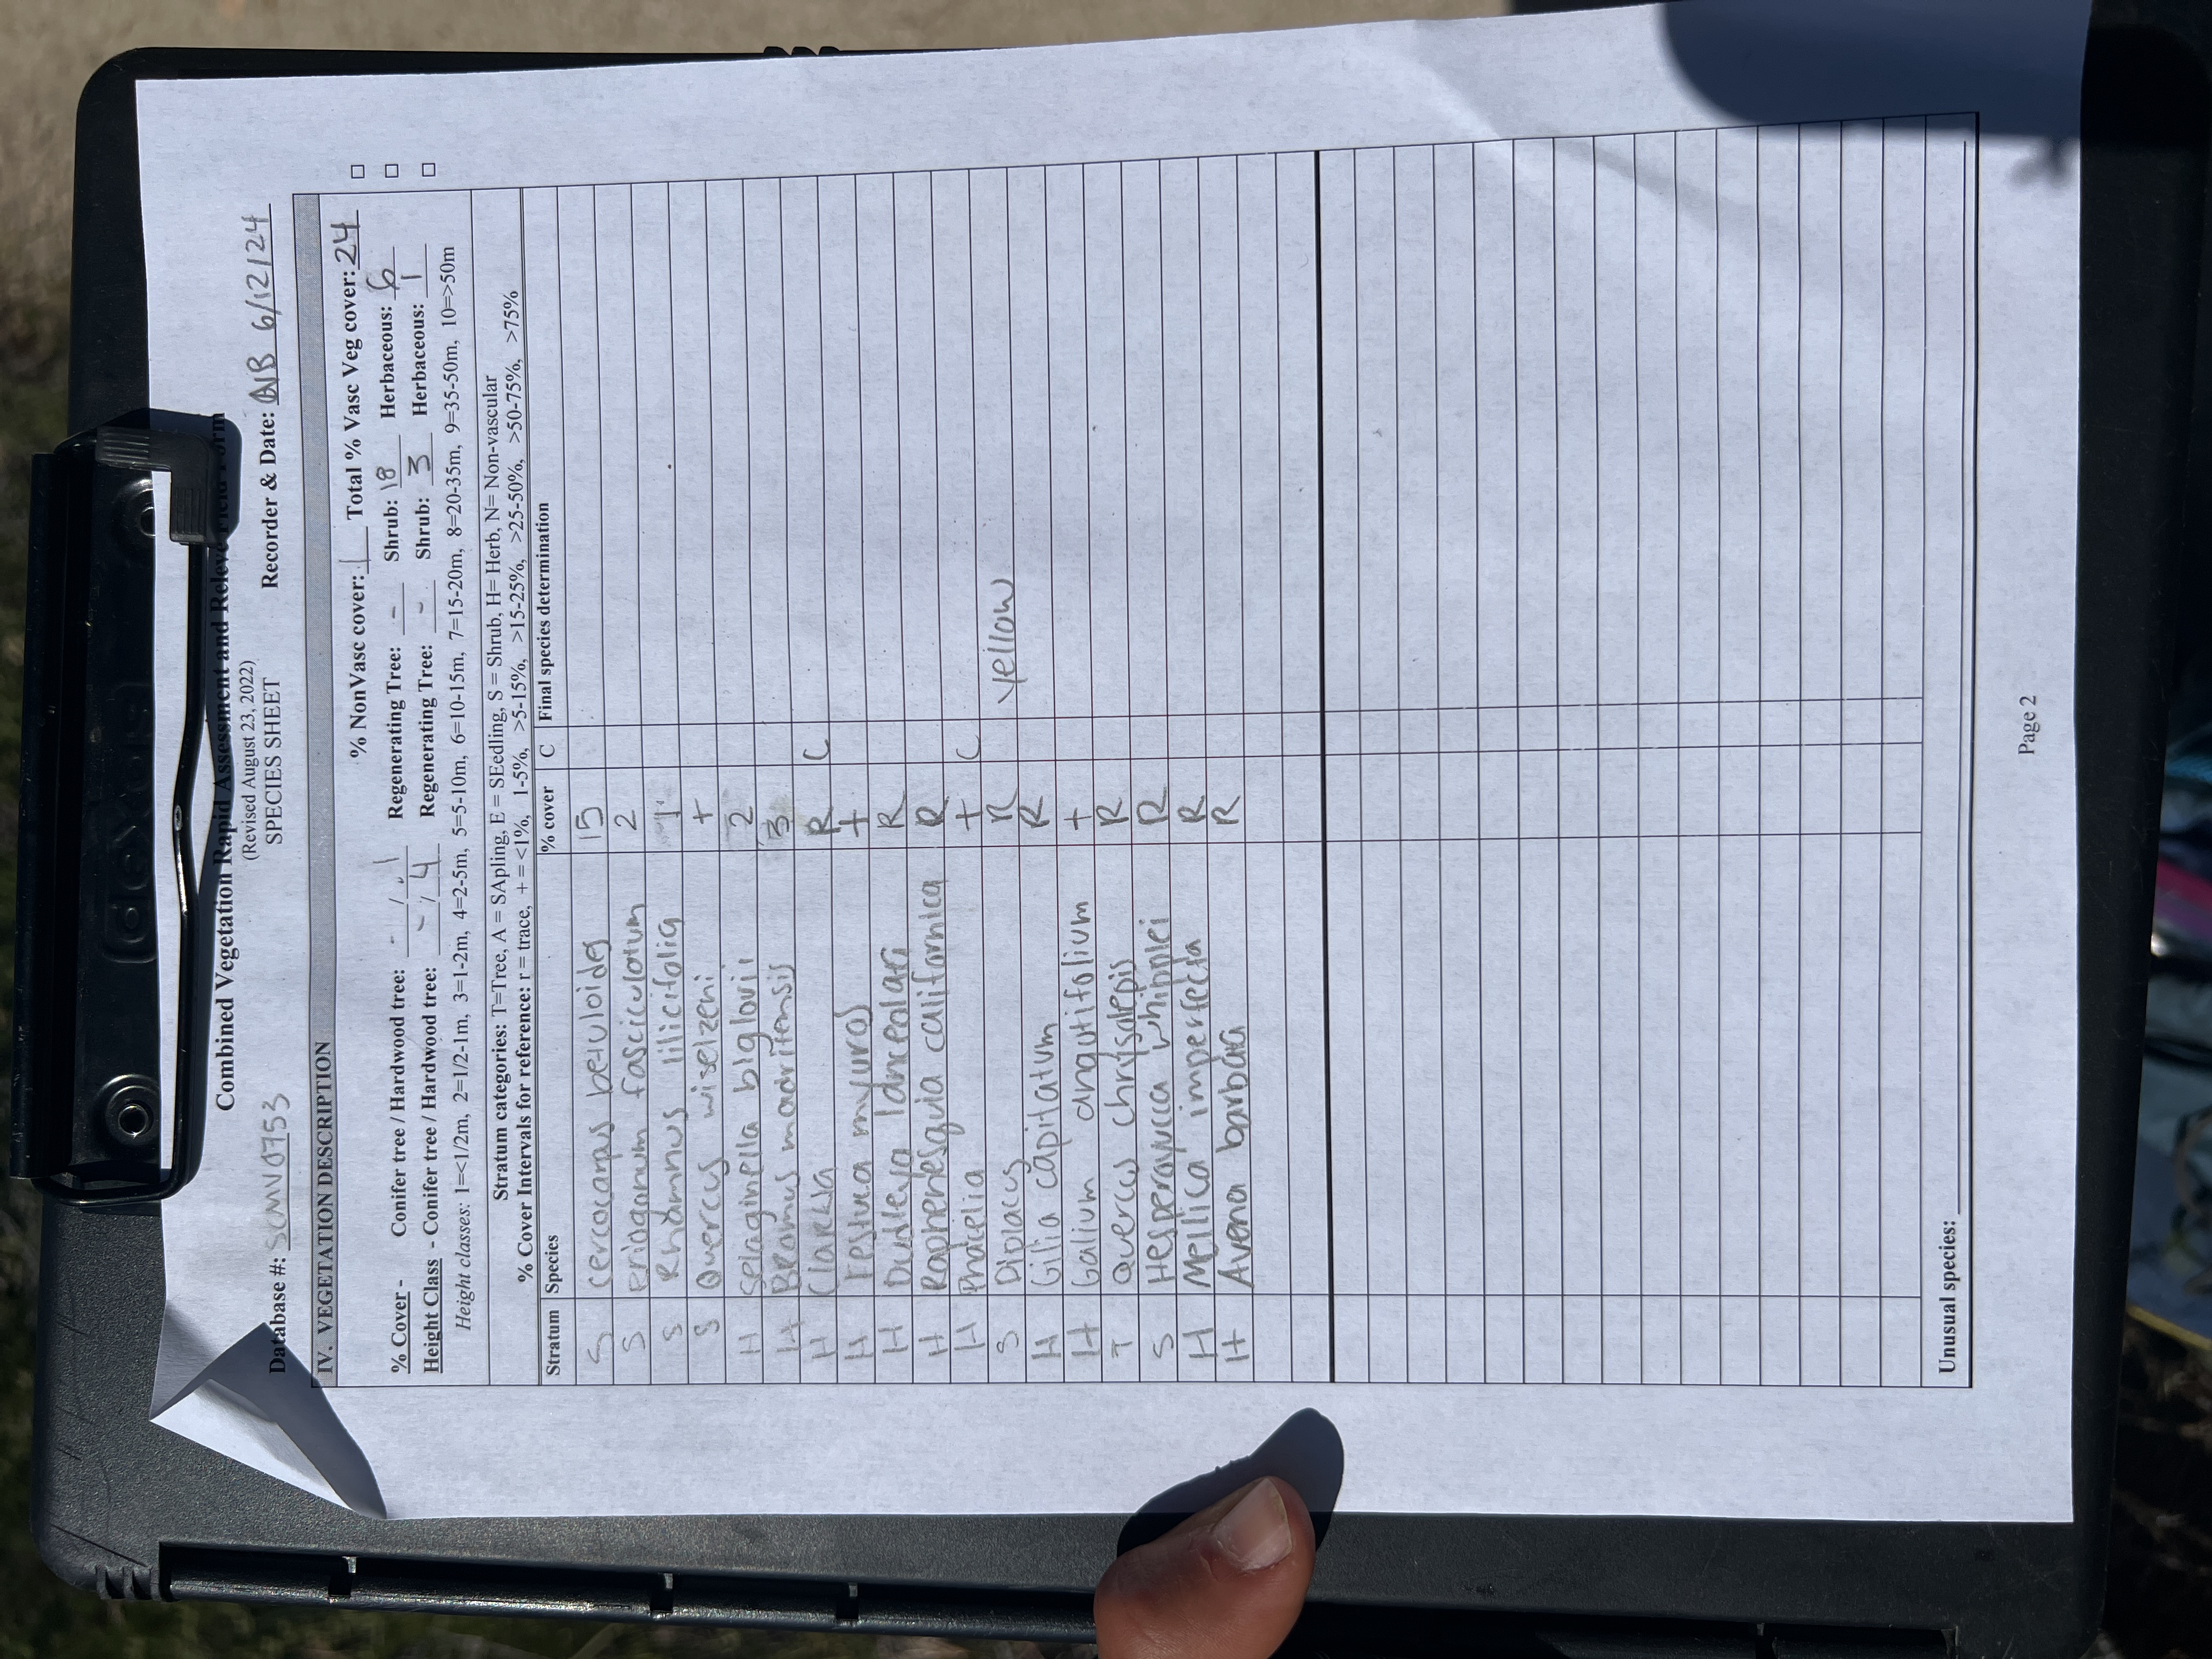 Combined Vegetation Rapid Assessment and Relevé Field Form
(Revised August 23, 2022)
Database #: SCMV0753 SPECIES SHEET Recorder & Date: ANB 6/12/24
IV. VEGETATION DESCRIPTION
% NonVasc cover: 1 Total % Vasc Veg cover: 24
% Cover - Conifer tree / Hardwood tree: - / .1 Regenerating Tree: - Shrub: 18 Herbaceous: 6
Height Class - Conifer tree / Hardwood tree: - / 4 Regenerating Tree: - Shrub: 3 Herbaceous: 1
Height classes: 1=<1/2m, 2=1/2-1m, 3=1-2m, 4=2-5m, 5=5-10m, 6=10-15m, 7=15-20m, 8=20-35m, 9=35-50m, 10=>50m
Stratum categories: T=Tree, A = SApling, E = SEedling, S = Shrub, H= Herb, N= Non-vascular
% Cover Intervals for reference: r = trace, + = <1%, 1-5%, >5-15%, >15-25%, >25-50%, >50-75%, >75%
Stratum Species % cover C Final species determination
S cercocarpus betuloides 15
S eriogonum fasciculatum 2
S Rhamnus ilicifolia 1
S Quercus wiselzeni +
H Selaginella biglovii 2
H Bromus madritensis 3
H Clarkia R C
H Festuca myuros +
H Dudleya lanceolari R
H Raphenesquia californica R
H Phacelia + C
S Diplacus R yellow
H Gilia capitatum R
H Galium angutifolium +
T Quercus chrysolepis R
S Hesperoyucca whipplei R
H Mellica imperfecta R
H Avena barbata R
Unusual species:
Page 2